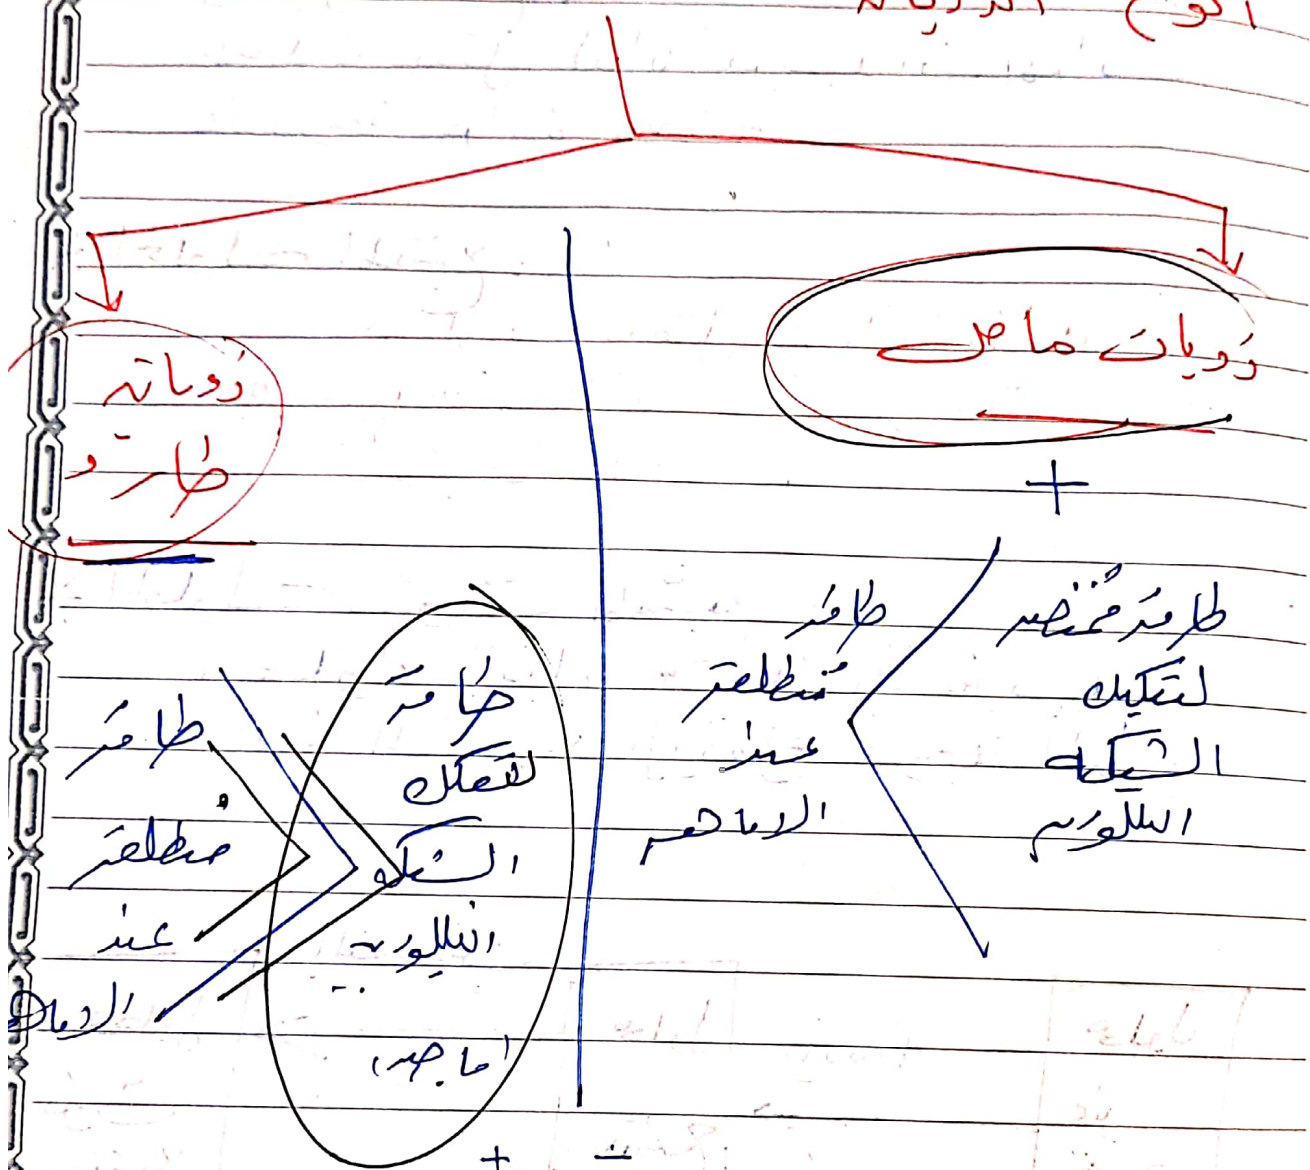 أنواع الذوبان
ذوبان ماص
+
طاقة ممتصة
لتفكيك
الشبكة
البللورية
طاقة
منطلقة
عند
الاماهه
ذوبان
طارد
طاقة
لتفكك
الشبكه
البللورية
اماصه
طاقة
منطلقة
عند
+ =